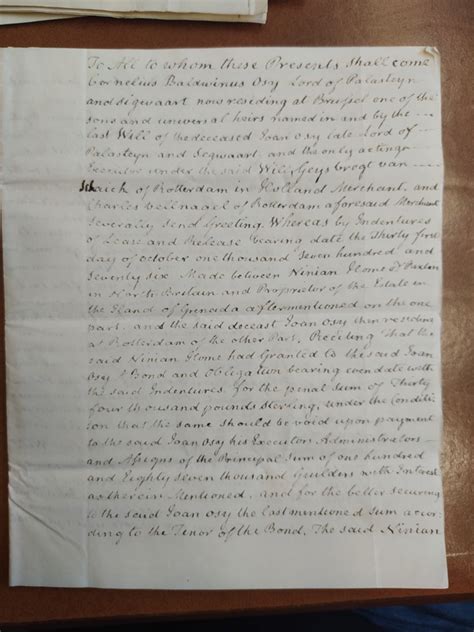 To All to whom these Presents shall come
Cornelius Baldwinus Osy Lord of Palasteyn
and Sigwaart now residing at Brussel one of the
sons and universal heirs named in and by the
last Will of the deceased Joan Osy late Lord of
Palasteyn and Segwaart and the only acting
Executor under the said Will Gysbregt van
Schaick of Rotterdam in Holland Merchant, and
Charles Vellnagel of Rotterdam aforesaid Merchant
severally send Greeting Whereas by Indentures
of Lease and Release bearing date the Thirty first
day of October one thousand seven hundred and
seventy six Made between Ninian Home of Paxton
in North Britain and Proprietor of the Estate in
the Island of Grenada aftermentioned on the one
part, and the said deceast Joan Osy then residing
at Rotterdam of the other Part, Reciting that the
said Ninian Home had Granted to the said Joan
Osy a Bond and Obligation bearing even date with
the said Indentures for the penal sum of Thirty
four thousand pounds sterling, under the Conditi-
tion that the same should be void upon payment
to the said Joan Osy his Executors Administrators
and Assigns of the Principal sum of one hundred
and Eighty seven thousand Guilders with Interest
as therein Mentioned, and for the better securing
to the said Joan Osy the last mentioned sum accor-
ding to the Tenor of the Bond, The said Ninian